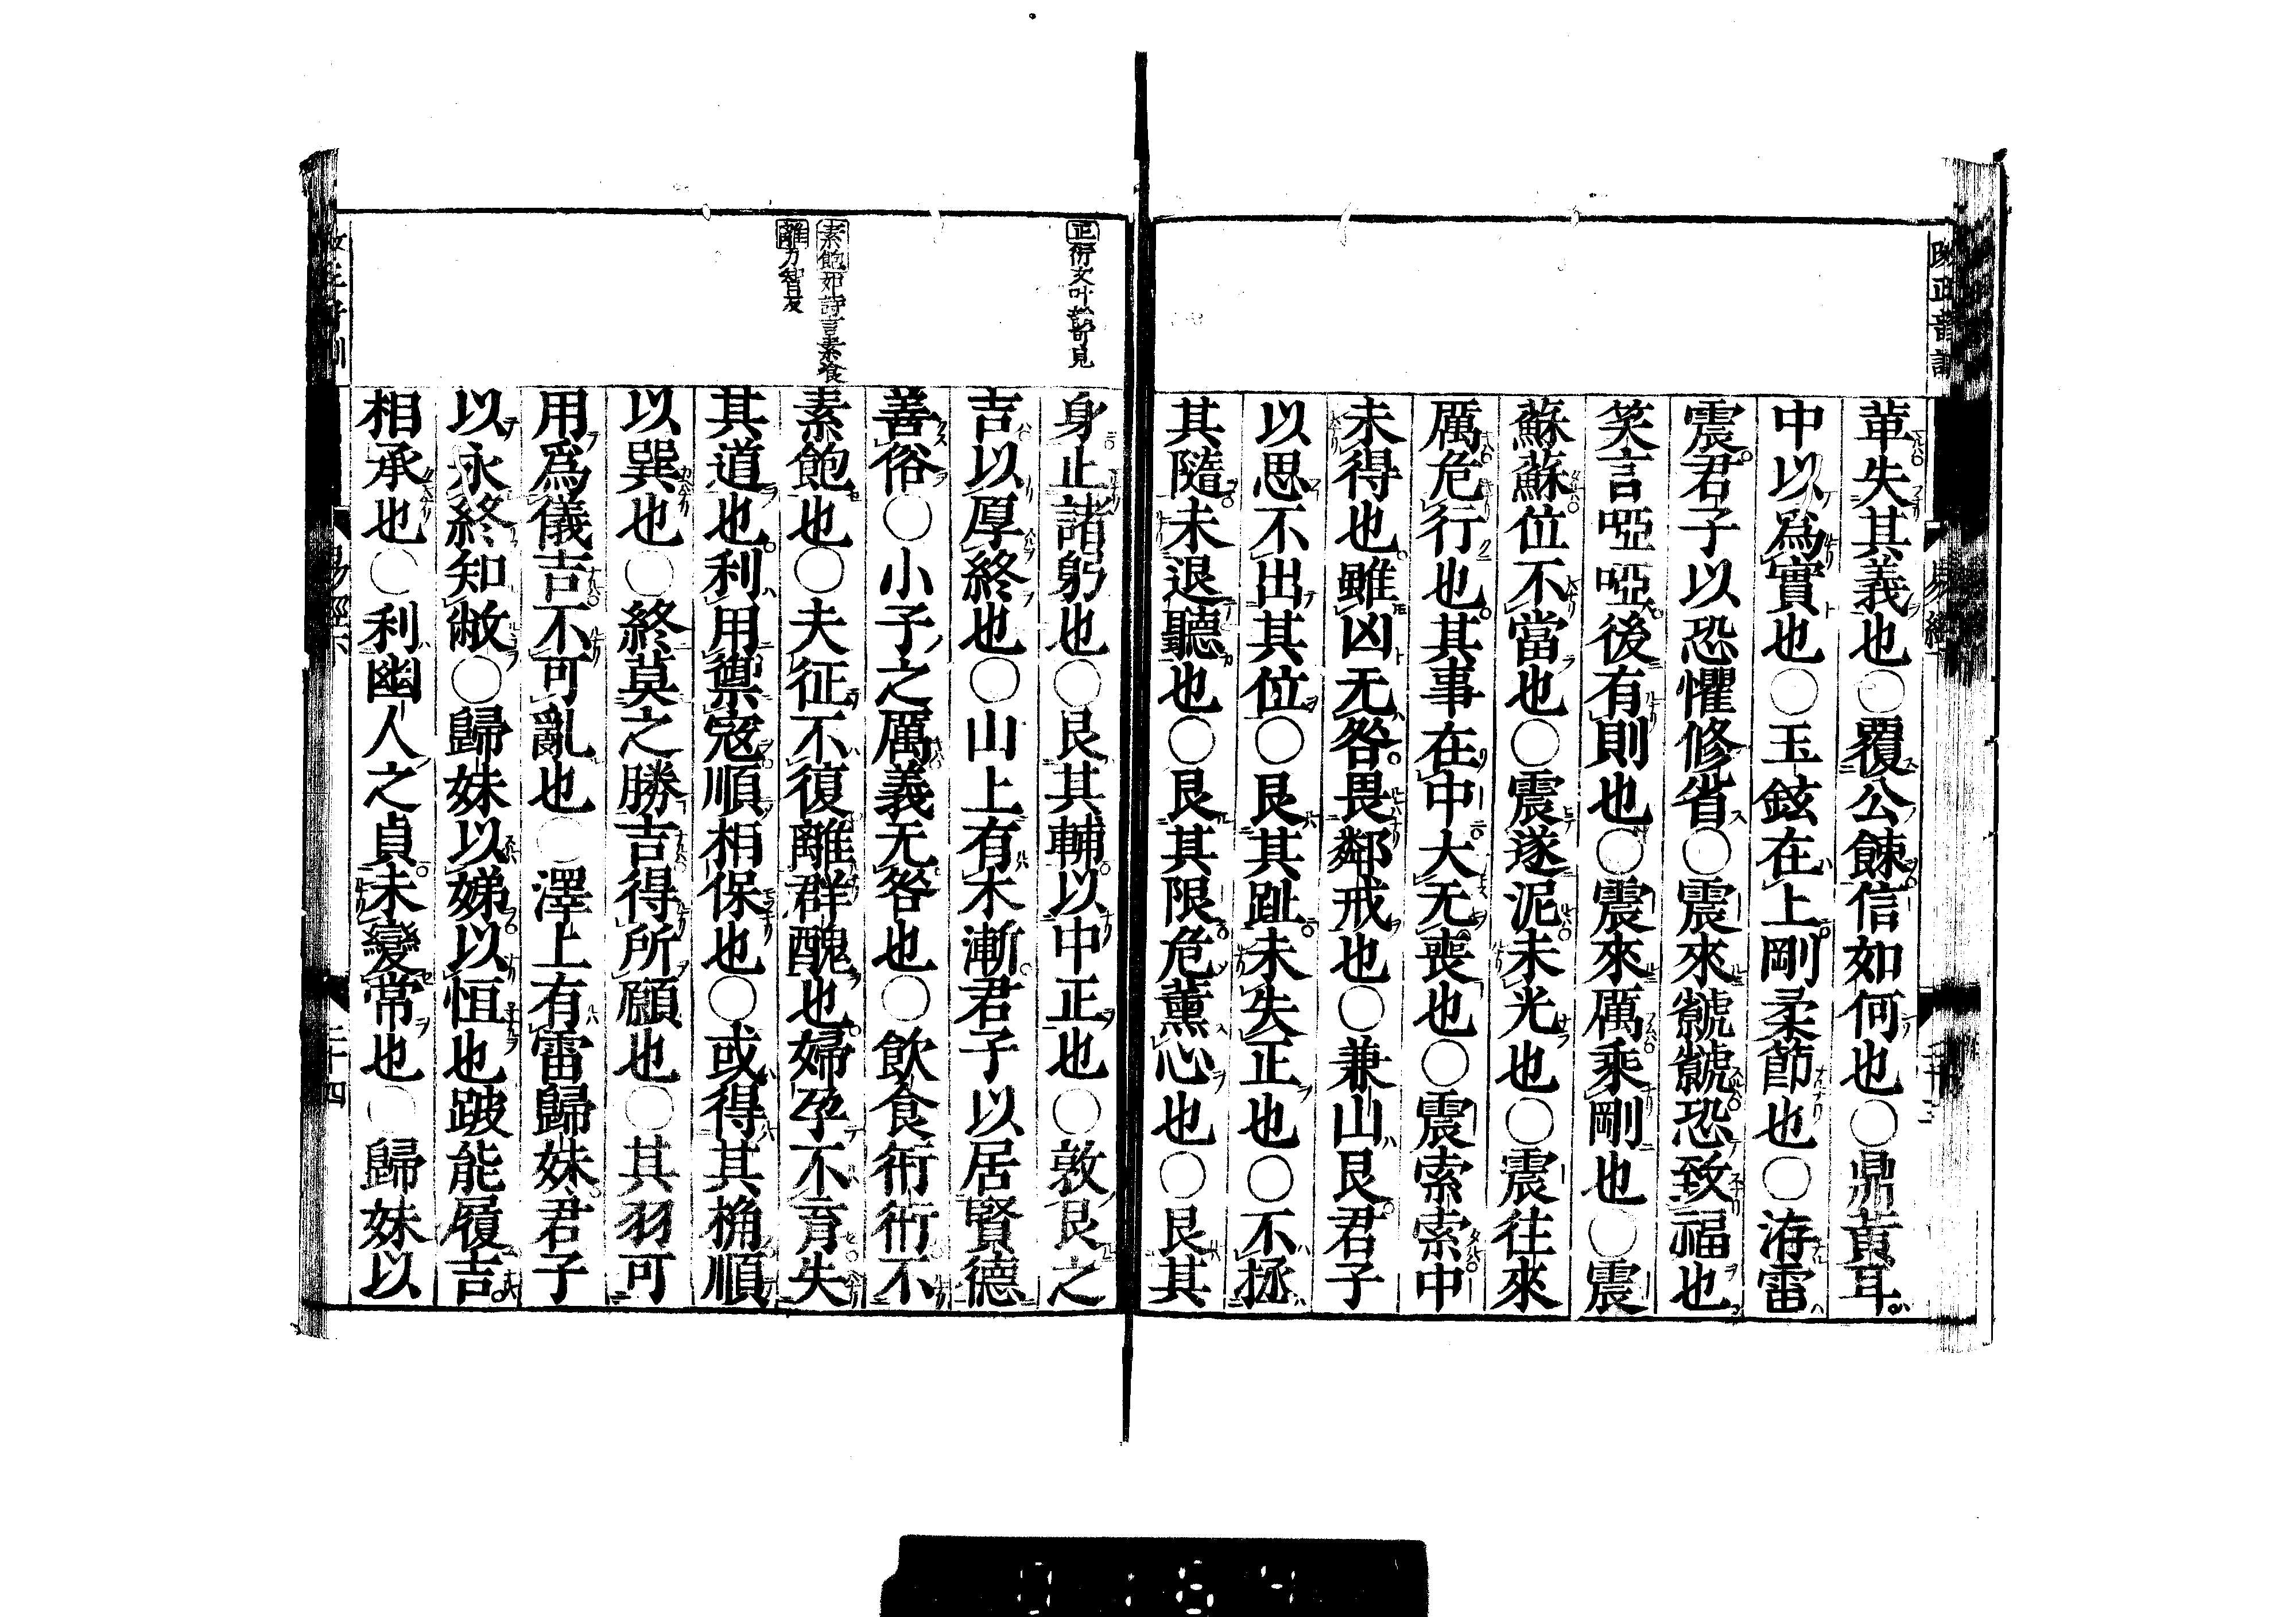 改正音訓
易經
二十三
革失其義也○覆公餗信如何也○鼎黃耳
中以爲實也○玉鉉在上剛柔節也○洊雷
震君子以恐懼修省○震來虩虩恐致福也
笑言啞啞後有則也○震來厲乘剛也○震
蘇蘇位不當也○震遂泥未光也○震往來
厲危行也其事在中大无喪也○震索索中
未得也雖凶无咎畏鄰戒也○兼山艮君子
以思不出其位○艮其趾未失正也○不拯
其隨未退聽也○艮其限危薰心也○艮其
正衍文叶韵可見
身止諸躬也○艮其輔以中正也○敦艮之
吉以厚終也○山上有木漸君子以居賢德
善俗○小子之厲義无咎也○飮食衎衎不
素飽如詩言素餐
離力智反
素飽也○夫征不復離群醜也婦孕不育失
其道也利用禦寇順相保也○或得其桷順
以巽也○終莫之勝吉得所願也○其羽可
用爲儀吉不可亂也○澤上有雷歸妹君子
以永終知敝○歸妹以娣以恒也跛能履吉
相承也○利幽人之貞未變常也○歸妹以
易經下
二十四